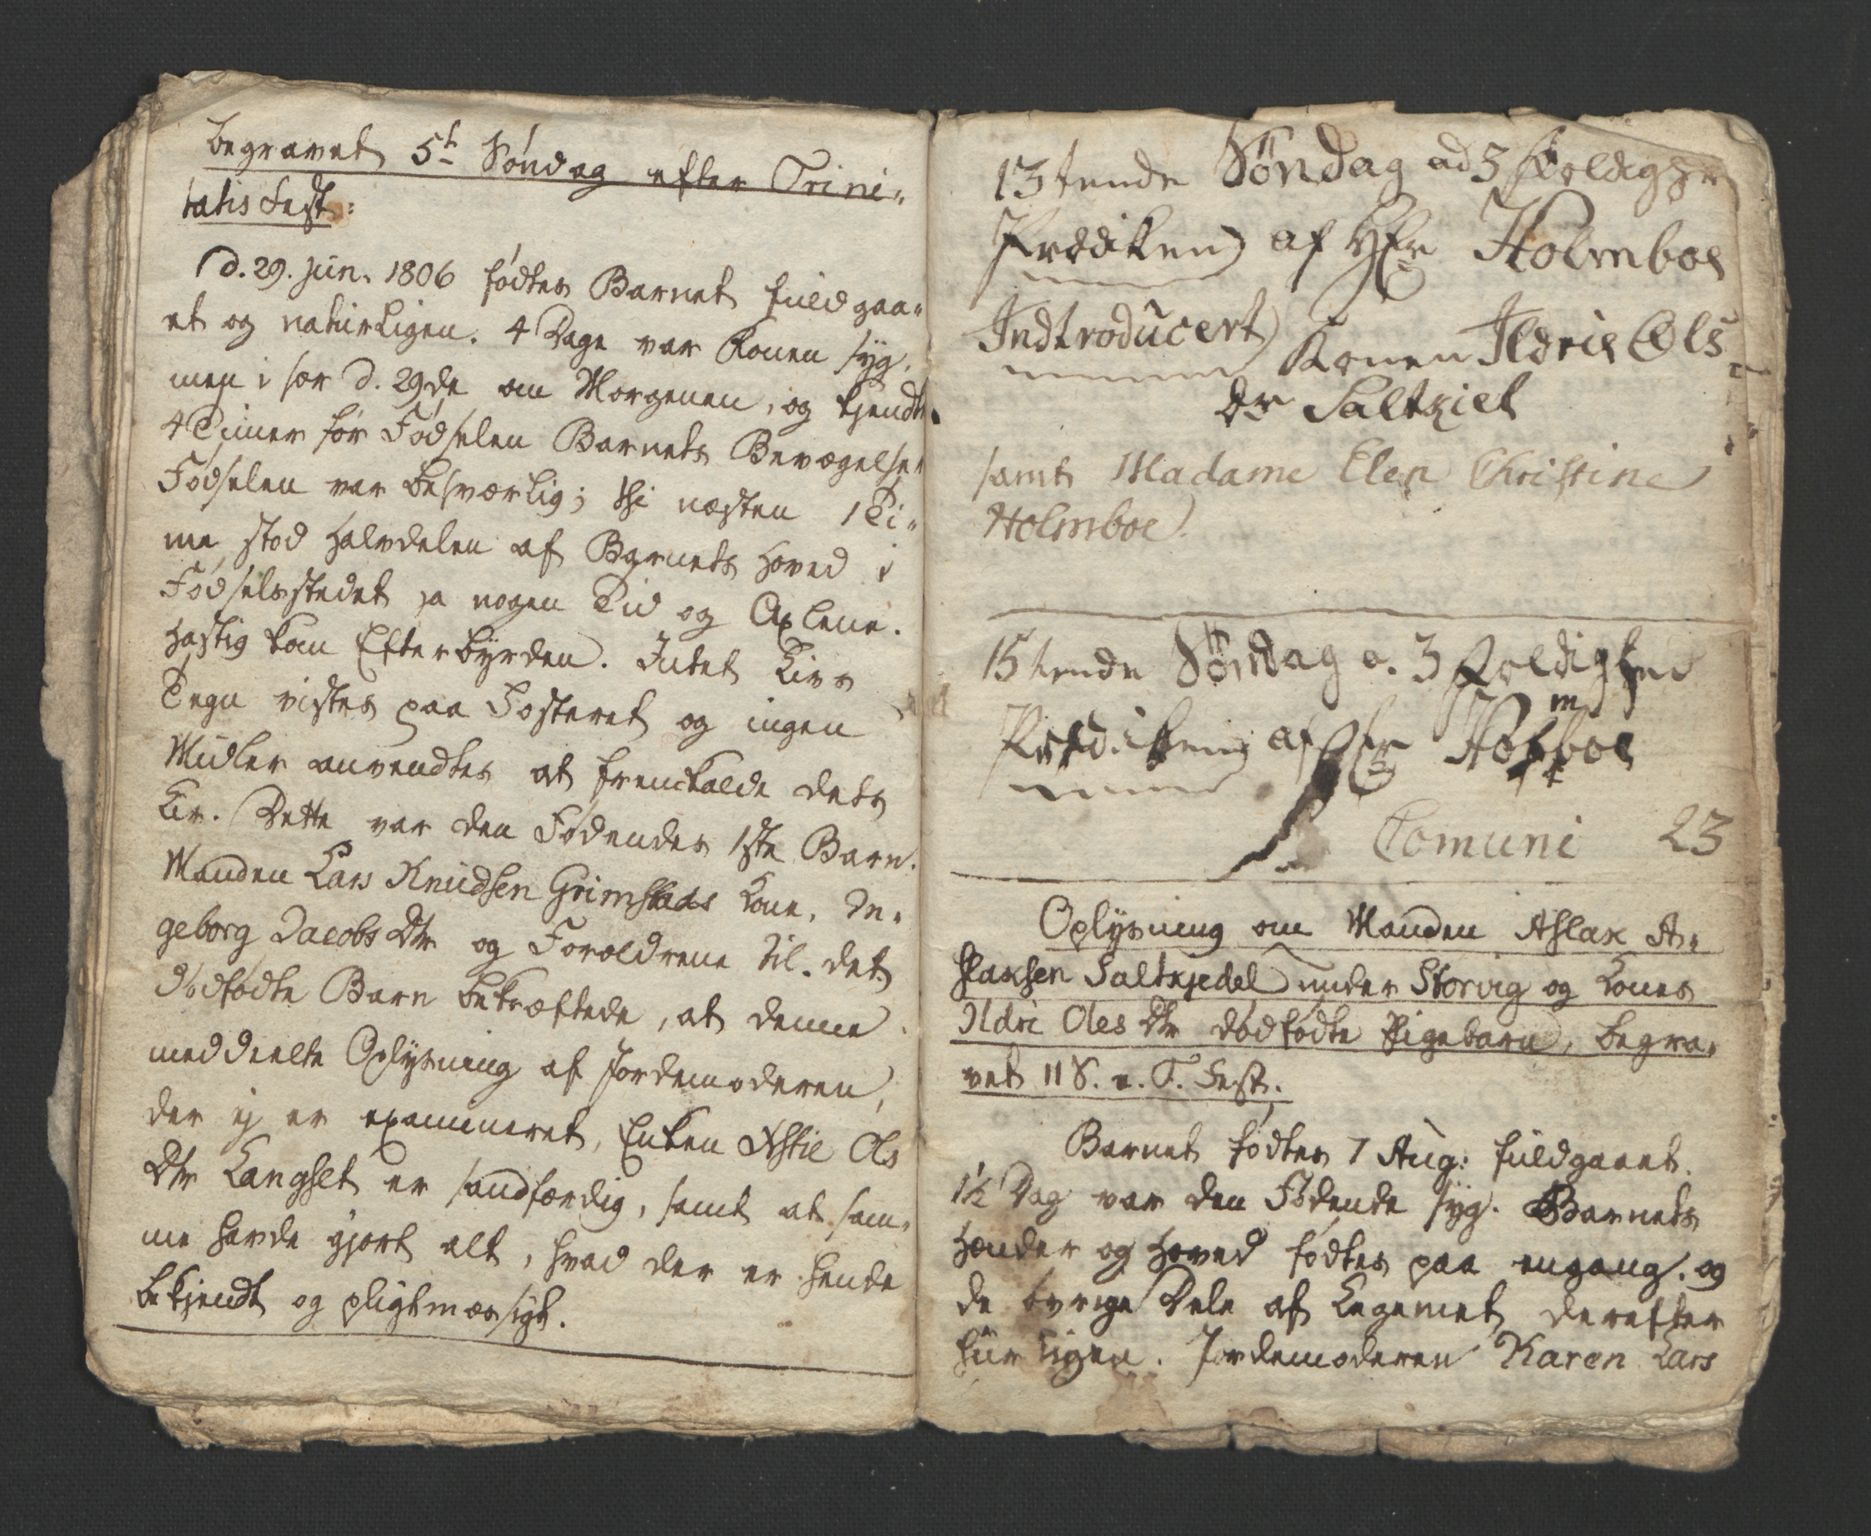 begravet 5t Søndag efter Trini-
tatis Fest:
d. 29. Jun. 1806 fødtes Barnet fuldgaa-
et og naturligen. 4 Dage var Konen syg,
men i sær d. 29de om Morgenen, og kjendte
4 Timer før Fødselen Barnets Bevægelser
Fødselen var besværlig; thi næsten 1 Ti-
me stod Halvdelen af Barnets Hoved i
Fødselsstedet ja nogen Tid og Axlene.
Hastig kom Efterbyrden. Intet Livs
Tegn vistes paa Fosteret og ingen
Midler anvendtes at fremkalde dets
Liv. Dette var den Fødendes 1ste Barn.
Manden Lars Knudsen Grimstads Kone, In-
geborg Jacobs Dtr og Forældrene til det
dødfødte Barn bekræftede, at denne
meddeelte Oplysning af Jordemoderen,
der ej er examineret, Enken Astie Ols
Dtr Langset er sandfærdig, samt at sam-
me havde gjort alt, hvad der er hende
bekjendt og pligtmæssigt.
13tende Søndag ad 3foldighed
Prædiken af Hr Holmboe
Indtroducert Konen Ildrie Ols
Dr Saltkiel
samt Madame Elen Christine
Holmboe.
15tende Søndag e. 3foldighed
Prædiken af Hr Holmboe
Comuni 23
Oplysning om Manden Aslak A-
slaksen Saltkjedel under Storvig og Kones
Ildri Oles Dtr dødfødte Pigebarn, begra-
vet 11 S. e. T. Fest.
Barnet fødtes 7 Aug: fuldgaaet.
1½ Dag var den Fødende syg. Barnets
Hænder og Hoved fødtes paa engang, og
de øvrige Dele af Legemet derefter
hurtigen. Jordemoderen Karen Lars